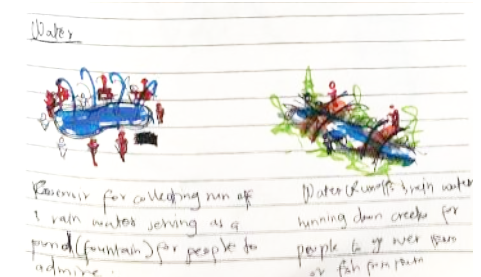 Water
Reservoir for collecting run off
& rain water serving as a
pond (fountain) for people to
admire.
Water Runoffs & rain water
running down creeks for
people to go over
or fish from